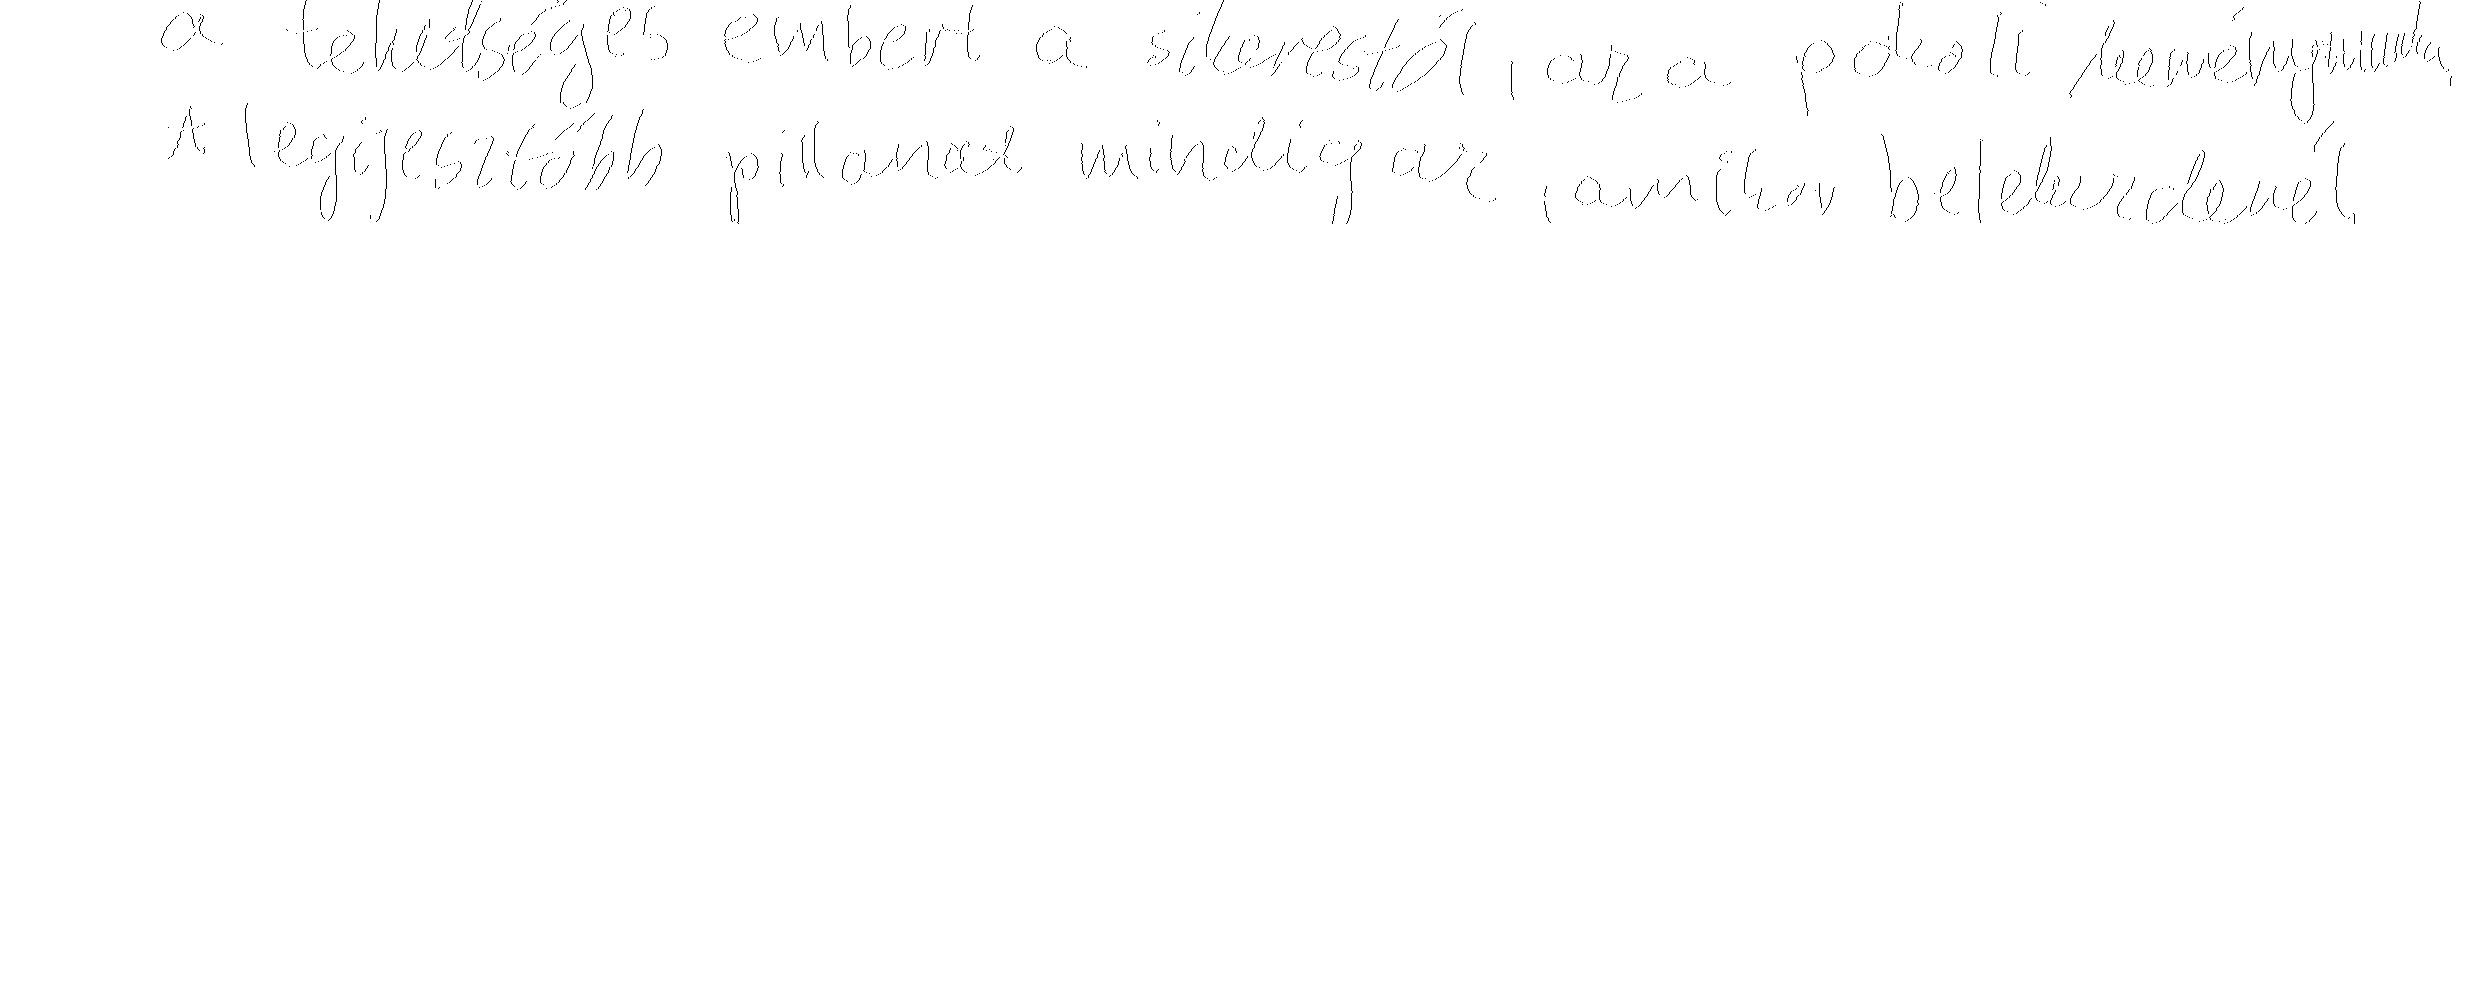 a tehetséges embert a sikerestől, az a pokoli keménymunka.
A legijesztőbb pillanat mindig az, amikor belekezdenél.